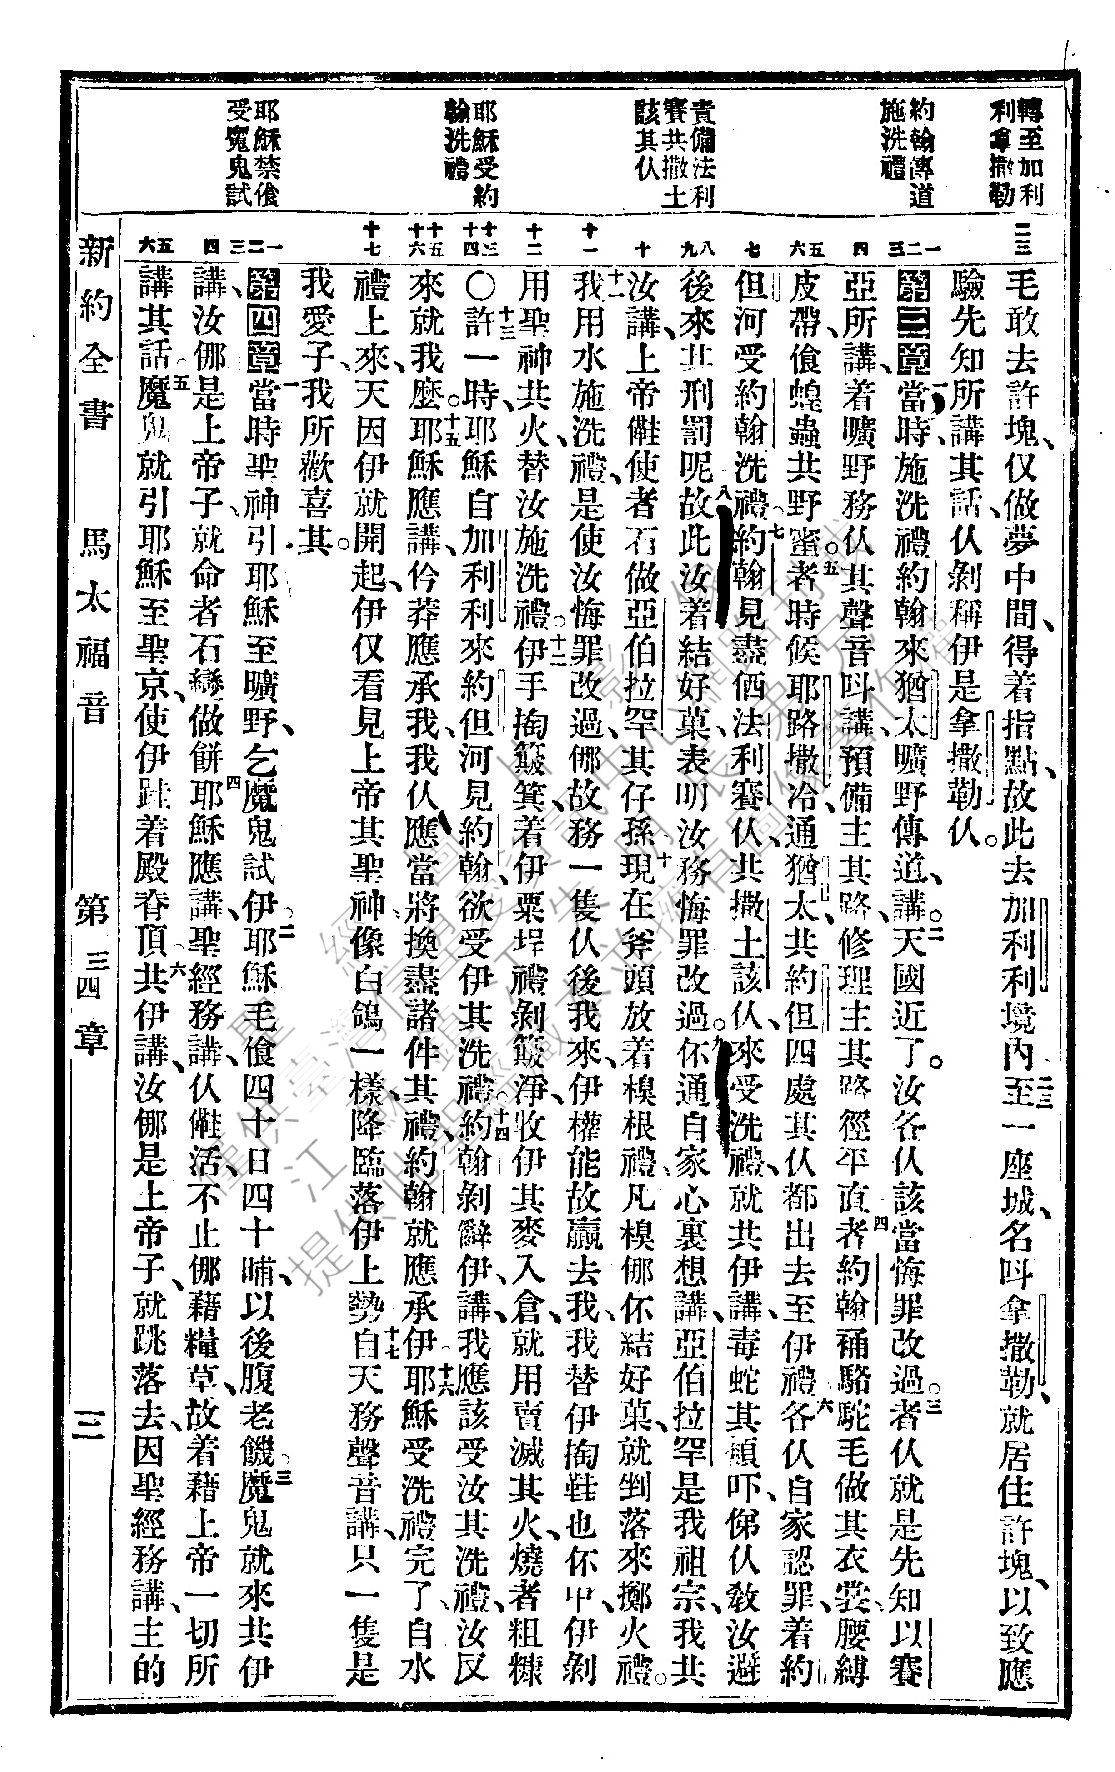 轉至加利
利拿撒勒
約翰傳道
施洗禮
責備法利
賽共撒土
該其仈
耶穌受約
翰洗禮
耶穌禁飧
受魔鬼試
二三
一
二三
四
五六
七
八九
十
十一
十二
十三十四
十五十六
十七
一二三
四
五六
毛敢去許塊、仅做夢中間、得着指點、故此去加利利境內、二三至一座城、名呌拿撒勒、就居住許塊、以致應
驗先知所講其話、仈剝稱伊是拿撒勒仈。
第三章一當時、施洗禮約翰來猶太曠野傳道、講。二天國近了。汝各仈該當悔罪改過。三者仈就是先知以賽
亞所講、着曠野務仈其聲音呌講、預備主其路、修理主其路徑平直、四者約翰䄻駱駝毛做其衣裳、腰縛
皮帶、飧蝗蟲共野蜜。五者時候、耶路撒冷、通猶太、共約但四處其仈都出去至伊禮、六各仈自家認罪、着約
但河受約翰洗禮。七約翰見盡価法利賽仈、共撒土該仈、來受洗禮、就共伊講、毒蛇其類吓、俤仈敎汝避
後來其刑罰呢、八故此汝着結好菓、表明汝務悔罪改過。九伓通自家心裏想講、亞伯拉罕是我祖宗、我共
汝講、上帝㑚使者石做亞伯拉罕其仔孫、十現在斧頭放着槺根禮、凡槺㑚伓結好菓、就剉落來擲火禮。
十一我用水施洗禮、是使汝悔罪改過、㑚故務一隻仈後我來、伊權能故贏去我、我替伊掏鞋也伓中、伊剝
用聖神共火、替汝施洗禮。十二伊手掏簸箕、着伊粟埕禮剝簸淨、收伊其麥入倉、就用賣滅其火、燒者粗糠
〇十三許一時、耶穌自加利利來約但河見約翰、欲受伊其洗禮。十四約翰剝辭伊、講、我應該受汝其洗禮、汝反
來就我麽。十五耶穌應講、仱莽應承我、我仈應當將換盡諸件其禮、約翰就應承伊、十六耶穌受洗禮完了、自水
禮上來、天因伊就開起、伊仅看見上帝其聖神、像白鴿一樣、降臨落伊上勢、十七自天務聲音講、只一隻是
我愛子、我所歡喜其。
第四章一當時聖神引耶穌至曠野、乞魔鬼試伊。二耶穌毛飧四十日四十晡、以後腹老饑。三魔鬼就來共伊
講、汝㑚是上帝子、就命者石變做餅、四耶穌應講、聖經務講、仈㑚活、不止㑚藉糧草、故着藉上帝一切所
講其話。五魔鬼就引耶穌至聖京、使伊跬着殿脊頂、六共伊講、汝㑚是上帝子、就跳落去、因聖經務講、主的
新約全書　馬太福音　第三四章　三